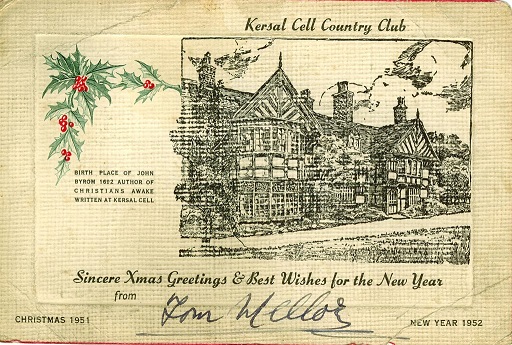 Kersal Cell Country Club
BIRTH PLACE OF JOHN
BYROM 1692 AUTHOR OF
CHRISTIANS AWAKE
WRITTEN AT KERSAL CELL
Sincere Xmas Greetings & Best Wishes for the New Year
from
Tom Mellor
CHRISTMAS 1951
NEW YEAR 1952